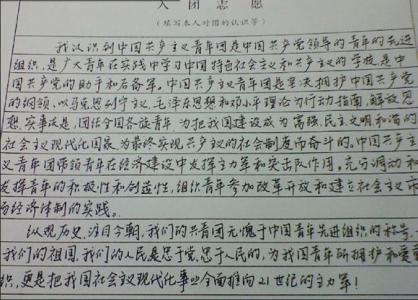 入团志愿
（填写本人对团的认识等）
我认识到中国共产主义青年团是中国共产党领导的青年的先进
组织，是广大青年在实践中学习中国特色社会主义和共产主义的学校，是中
国共产党的助手和后备军。中国共产主义青年团坚决拥护中国共产党
的纲领，以马克思列宁主义，毛泽东思想和邓小平理论为行动指南，解放思
想，实事求是，团结全国各族青年，为把我国建设成为富强，民主文明和谐的
社会主义现代化国家，为最终实现共产主义的社会制度而奋斗的。中国共产主
义青年团带领青年在经济建设中发挥主力军和突击队作用。充分调动和
发挥青年的积极性和创造性，组织青年参加改革开放和建立社会主义市
场经济体制的实践。
纵观历史，放目今朝，我们的共青团无愧于中国青年先进组织的称号，
我们的祖国，我们的人民是忠于党，忠于人民的，为我国青年所拥护和爱戴
织，更是把我国社会主义现代化事业全面推向21世纪的主力军！